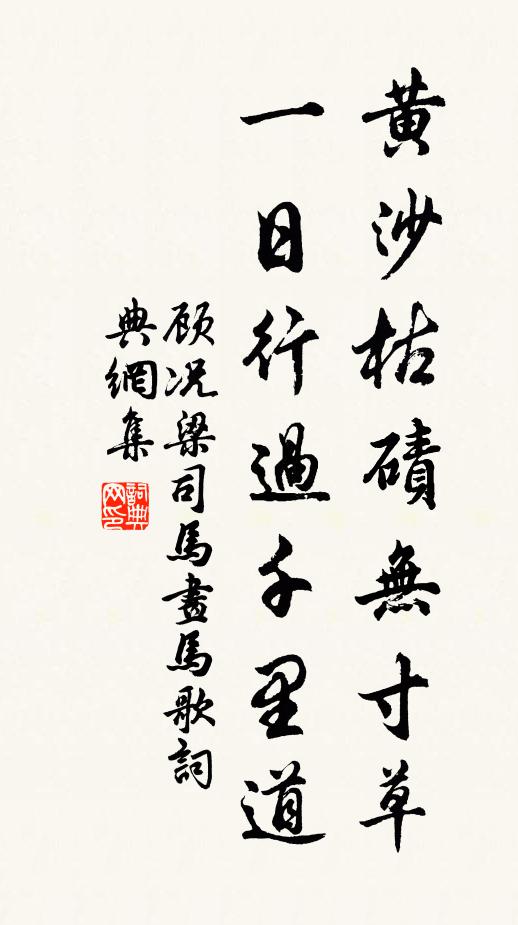 黄沙枯磧無寸草
一日行過千里道
顾况梁司馬畫馬歌詞
典網集
詞典
网印